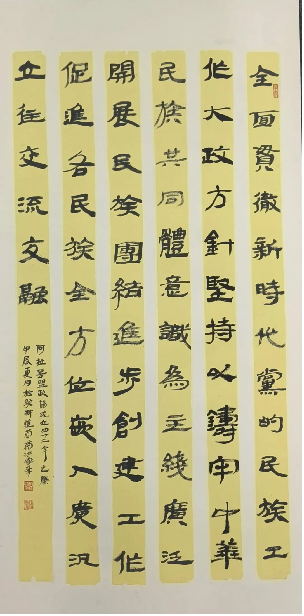 全面貫徹新時代黨的民族工
作大政方針堅持以鑄牢中華
民族共同體意識為主綫廣泛
開展民族團結進步創建工作
促進各民族全方位嵌入廣汎
交往交流交融
阿拉善盟政協
甲辰夏月